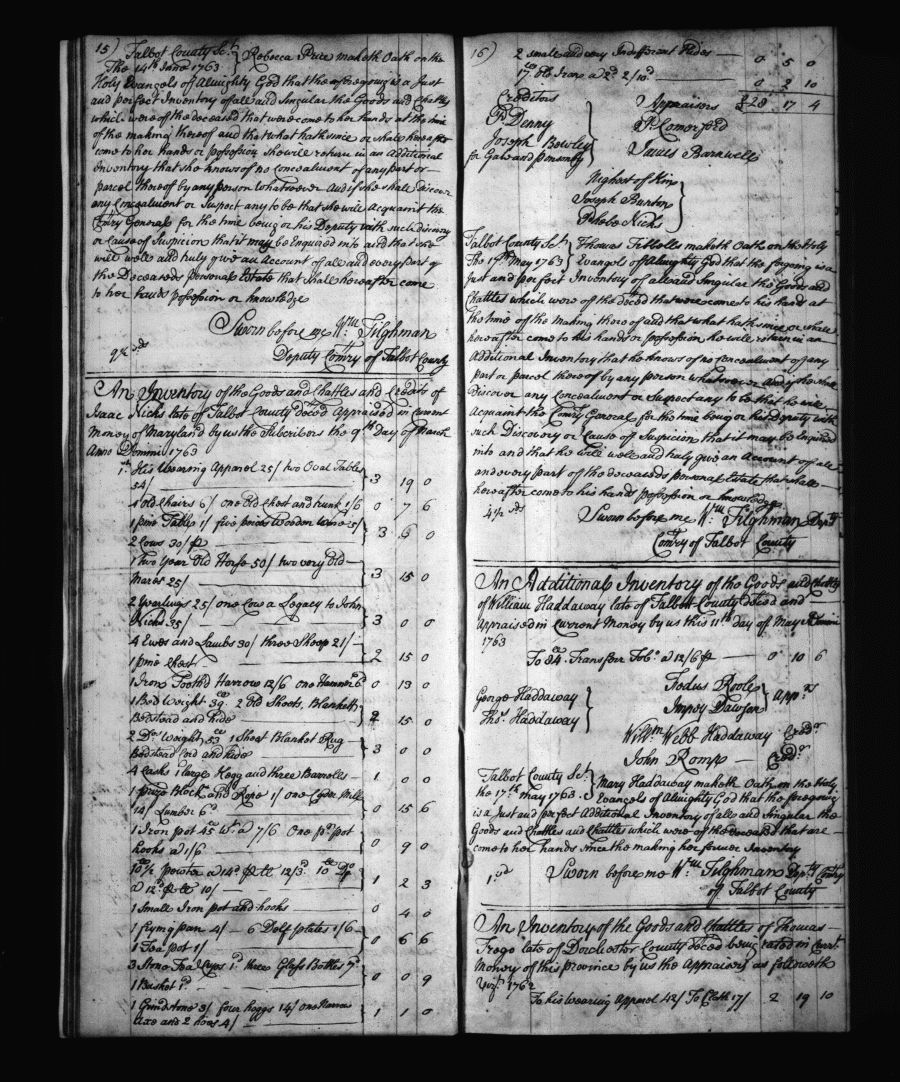 15)
Talbot County Sct. } Rebecca Price maketh Oath on the
The 14th June 1763 }
Holy Evangels of Almighty God that the aforegoing is a Just
and perfect Inventory of all and Singular the Goods and Chattles
which were of the deceased that were come to her hands at the time
of the making thereof and that what hath since or shall hereafter
come to her hands or possession she will return in an Additional
Inventory that she knows of no Concealment of any part or
parcel thereof by any person whatsoever And if she shall discover
any Concealment or Suspect any to be that she will Acquaint the
Comry General for the time being or his Deputy with such discovery
or Cause of Suspicion that it may be Enquired into and that she
will well and truly give an Account of all and every part of
the Deceaseds personal Estate that shall hereafter come
to her hands possession or knowledge
Sworn before me Wm: Tilghman
Deputy Comry of Talbot County
An Inventory of the Goods and Chattles and Credits of
Isaac Nicks late of Talbot County deced Appraised in Current
Money of Maryland by us the Subscribers the 9th Day of March
Anno Domini 1763
His Wearing Apparel 25/ two Oval Tables
54/ 3 19 0
4 old Chairs 6/ one old Chest and trunk 1/6 0 7 6
1 pine Table 1/ five peices Wooden Ware 5/
2 Cows 30/ p 3 6 0
1 Two Year Old Horse 50/ two very old
Mares 25/ 3 15 0
2 Yearlings 25/ one Cow a Legacy to John
Nicks 35/ 3 0 0
4 Ewes and Lambs 30/ three Sheep 21/
1 pine Chest 2 15 0
1 Iron Tooth'd Harrow 12/6 one Hammer 6d 0 13 0
1 Bed Weight 39 2 old Sheets, Blankets
Bedstead and hide 2 15 0
2 Do Weight 53 1 Sheet Blanket Rug
Bedstead Cord and hide 3 0 0
4 Casks 1 large Hogg and three Barrells 1 0 0
1 press Block and Rope 1/ one Cyder Mill
14/ Lumber 6d 0 15 6
1 Iron pot 45 Wt. a 7/6 one pr pot
hooks a 1/6 0 9 0
10½ pewter a 14d p lb 12/3d 10 Do
a 12d p lb 10/ 1 2 3
1 Small Iron pot and hooks 0 4 0
1 frying pan 4/ 6 Delf plates 1/6
1 Tea pot 1/ 0 6 6
3 Stone Tea Cups 1d three Glass Bottles 7d
1 Basket 1d 0 0 9
1 Grindstone 3/ four hoggs 14/ one Narrow
Axe and 2 hoes 4/ 1 1 0
16)
2 small and very Indifferent Hides 0 5 0
17 Old Iron a 2d 2/10d 0 2 10
£28 17 4
Creditors
P Denny
Joseph Bewley
for Gale and Ponsonby
Appraisers
P Comerford
James Barnwell
Nighest of Kin
Joseph Burton
Phebe Nicks
Talbot County Sct. } Thomas Tibballs maketh Oath on the Holy
The 19th May 1763 } Evangels of Almighty God that the forgoing is a
Just and perfect Inventory of all and Singular the Goods and
Chattles which were of the deced that were come to his hand at
the time of the Making thereof and that what hath since or shall
hereafter come to his hands or possession he will return in an
Additional Inventory that he knows of no Concealment of any
part or parcel thereof by any person whatsoever and if he shall
Discover any Concealment or Suspect any to be that he will
Acquaint the Comry General for the time being or his Deputy with
such Discovery or Cause of Suspicion that it may be Enquired
into and that he will well and truly give an Account of all
and every part of the deceaseds personal Estate that shall
hereafter come to his hands possession or knowledge
Sworn before me Wm: Tilghman Depty
Comry of Talbot County
An Additional Inventory of the Goods and Chattles
of William Haddaway late of Talbot County deced and
Appraised in Current Money by us this 11th day of May A Domini
1763
To 84 Transfer Tobo. a 12/6 p 0 10 6
George Haddaway
Thos. Haddaway
Fodus Poole
Impey Dawson } Apprs
Willm Webb Haddaway Credr
John Romp Credr
Talbot County Sct. } Mary Haddaway maketh Oath on the Holy
the 17th May 1763 } Evangels of Almighty God that the foregoing
is a Just and perfect Additional Inventory of all and Singular the
Goods and Chattles and Chattles which were of the deceased that are
come to her hands since the making her former Inventory
Sworn before me Wm: Tilghman Depty Comry
of Talbot County
An Inventory of the Goods and Chattles of Thomas
late of Dorchester County deced being rated in Curt
Money of this province by us the Appraisers as followeth
Vizt 1762
To his Wearing Apparel 42/ To Cloth 17/ 2 19 10